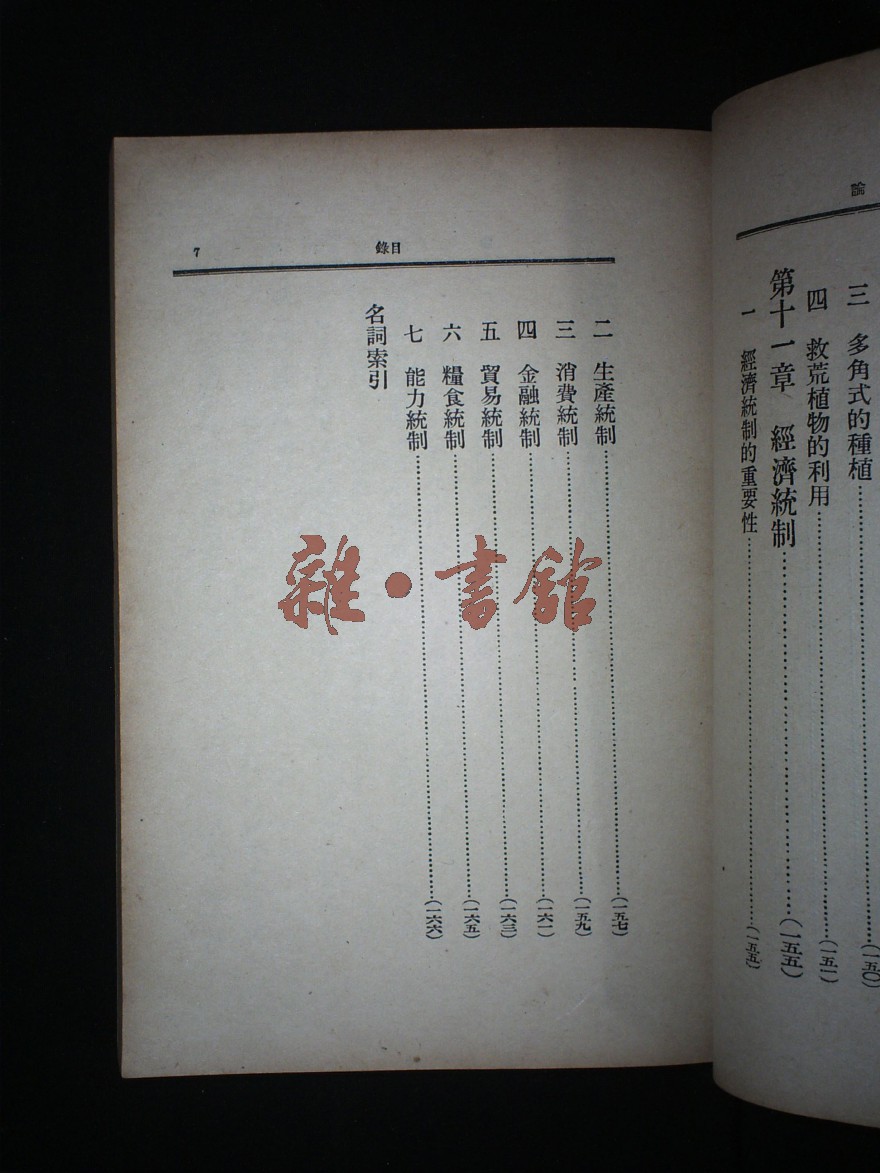 論
三 多角式的種植……(一五〇)
四 救荒植物的利用……(一五一)
第十一章 經濟統制……(一五五)
一 經濟統制的重要性……(一五五)
錄目
7
二 生產統制……(一五七)
三 消費統制……(一五九)
四 金融統制……(一六一)
五 貿易統制……(一六三)
六 糧食統制……(一六五)
七 能力統制……(一六六)
名詞索引
雜·書館